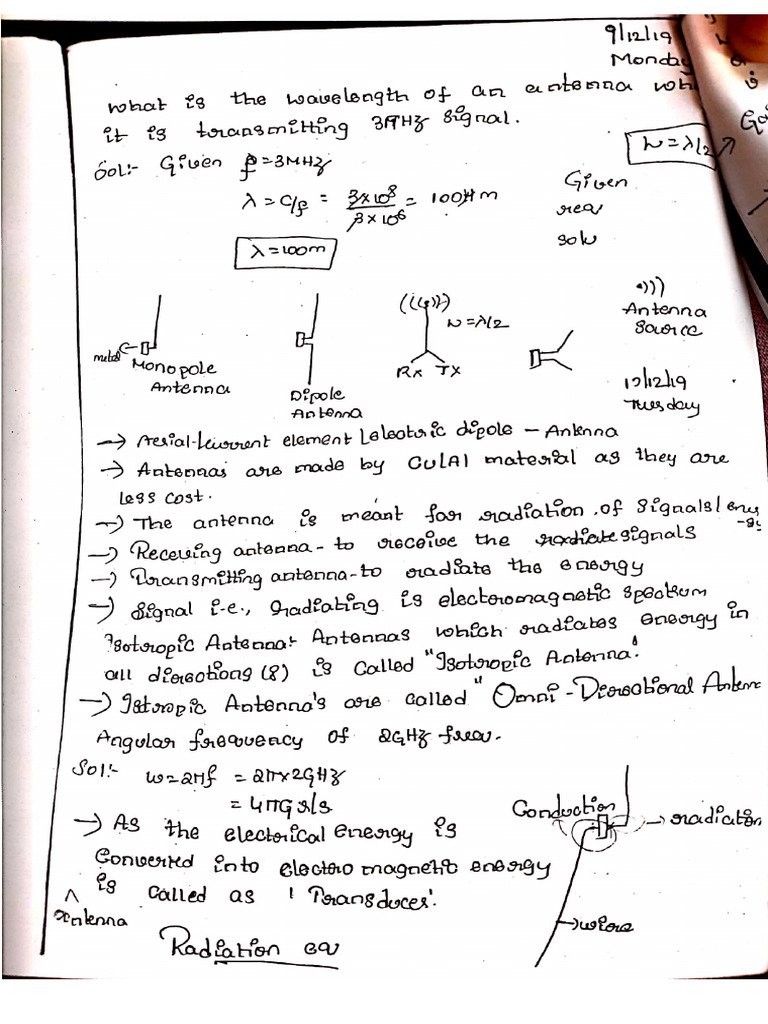 9/12/19
Monday
what is the wavelength of an antenna
it is transmitting 3MHz signal.
Sol:- Given f = 3MHz
λ = C/f = 3×10⁸ / 3×10⁶ = 100 m
λ = 100m
L = λ/2
Given
req
solu
metal
Monopole Antenna
Dipole Antenna
L = λ/2
Rx Tx
Antenna Source
10/12/19
Tuesday
→ Aerial - current element | electric dipole - Antenna
→ Antennas are made by Cu|Al material as they are
less cost.
→ The antenna is meant for radiation of signals /
→ Receving antenna - to receive the radiate signals
→ Transmitting antenna - to radiate the energy
→ Signal i.e., radiating is electromagnetic spectrum
Isotropic Antenna:- Antennas which radiates energy in
all directions (8) is called "Isotropic Antenna'.
→ Isotropic Antenna's are called " Omni - Directional
Angular frequency of 2GHz freq.
Sol:- w = 2πf = 2π×2GHz
= 4πG r/s
→ As the electrical energy is
Converted into electro magnetic energy
^ is called as 'Transducer'.
antenna
Conduction
→ radiation
→ wire
Radiation eq